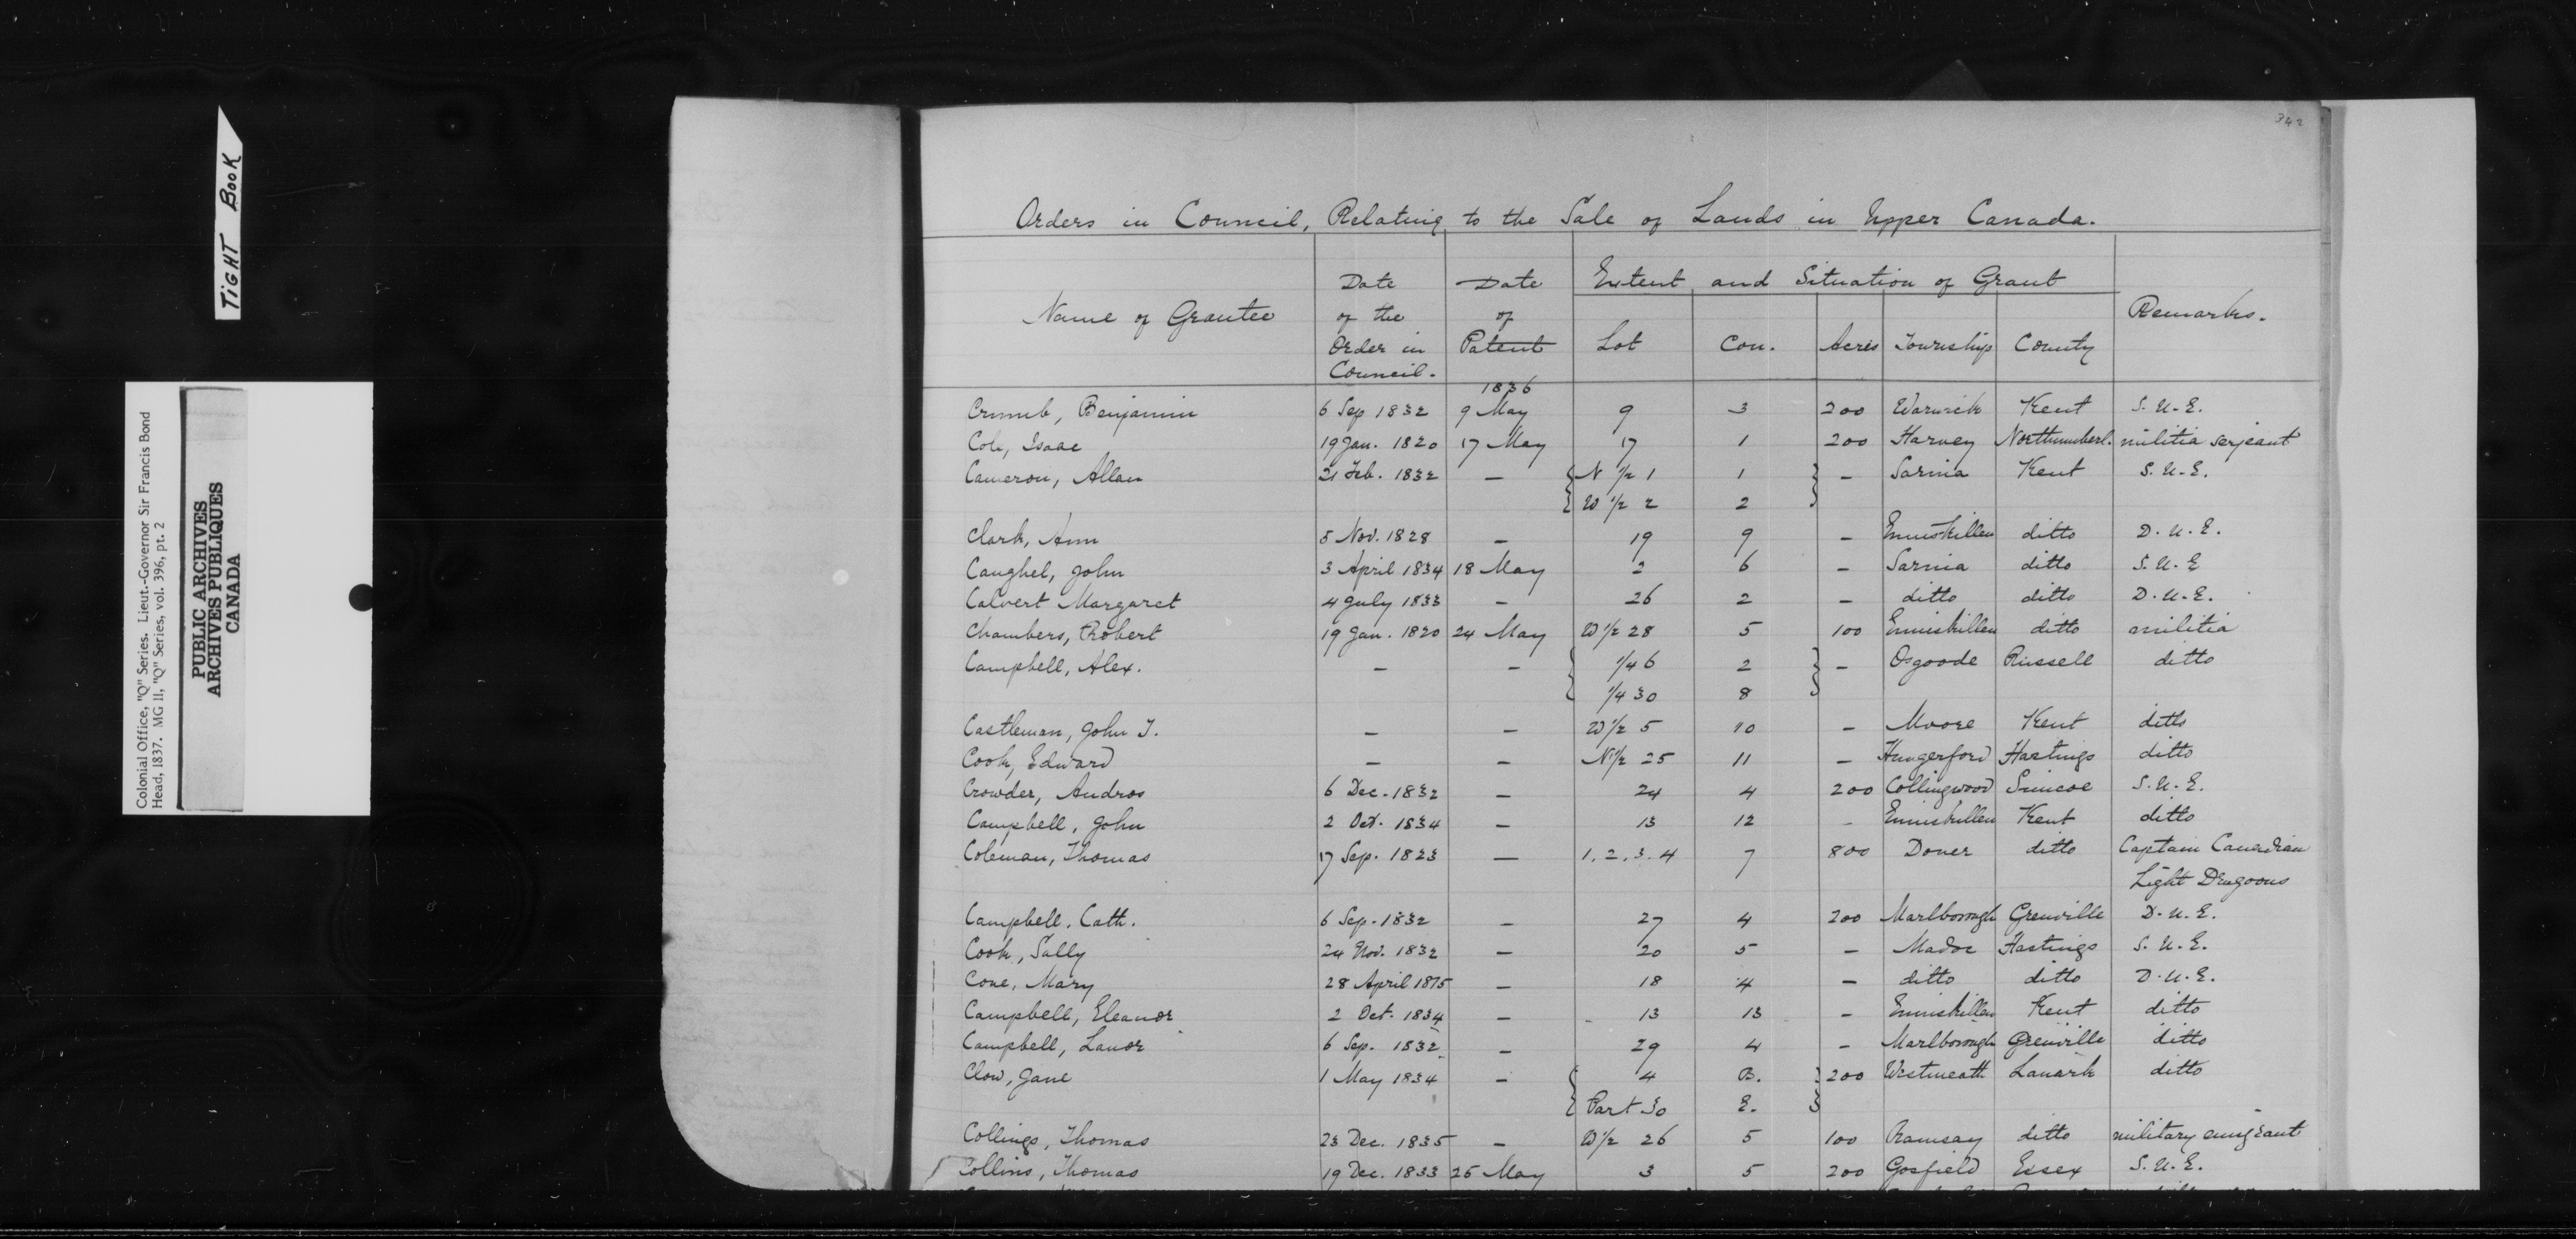 TIGHT BOOK
Colonial Office, "Q" Series. Lieut.-Governor Sir Francis Bond
Head, 1837. MG 11, "Q" Series, vol. 396, pt. 2
PUBLIC ARCHIVES
ARCHIVES PUBLIQUES
CANADA
342
Orders in Council, Relating to the Sale of Lands in Upper Canada.
Name of Grantee | Date of the Order in Council. | Date of Patent | Extent and Situation of Grant | Remarks.
Lot | Con. | Acres | Township | County
1836
Crumb, Benjamin 6 Sep 1832 9 May 9 3 200 Warwick Kent S. U. E.
Cole, Isaac 19 Jan. 1820 17 May 17 1 200 Harvey Northumberl. militia serjeant
Cameron, Allan 21 Feb. 1832 — { N 1/2 1 1 } — Sarnia Kent S. U. E.
{ W 1/2 2 2 }
Clark, Ann 5 Nov. 1828 — 19 9 — Enniskillen ditto D. U. E.
Caughel, John 3 April 1834 18 May 2 6 — Sarnia ditto S. U. E
Calvert Margaret 4 July 1833 — 26 2 — ditto ditto D. U. E.
Chambers, Robert 19 Jan. 1820 24 May W 1/2 28 5 100 Enniskillen ditto militia
Campbell, Alex. — — { 1/4 6 2 } — Osgoode Russell ditto
{ 1/4 30 8 }
Castleman, John J. — — W 1/2 5 10 — Moore Kent ditto
Cook, Edward — — N 1/2 25 11 — Hungerford Hastings ditto
Crowder, Andros 6 Dec. 1832 — 24 4 200 Collingwood Simcoe S. U. E.
Campbell, John 2 Oct. 1834 — 13 12 - Enniskillen Kent ditto
Coleman, Thomas 17 Sep. 1823 — 1. 2. 3. 4 7 800 Dover ditto Captain Canadian
Light Dragoons
Campbell. Cath. 6 Sep. 1832 — 27 4 200 Marlborough Grenville D. U. E.
Cook, Sally 24 Nov. 1832 — 20 5 — Madoc Hastings S. U. E.
Cone, Mary 28 April 1815 — 18 4 — ditto ditto D. U. E.
Campbell, Eleanor 2 Oct. 1834 — 13 13 — Enniskillen Kent ditto
Campbell, Lanor 6 Sep. 1832 — 29 4 — Marlborough Grenville ditto
Clow, Jane 1 May 1834 — { 4 B. } 200 Westmeath Lanark ditto
{ Part 30 E. }
Collings, Thomas 23 Dec. 1835 — W 1/2 26 5 100 Ramsay ditto military emigrant
Collins, Thomas 19 Dec. 1833 25 May 3 5 200 Gosfield Essex S. U. E.